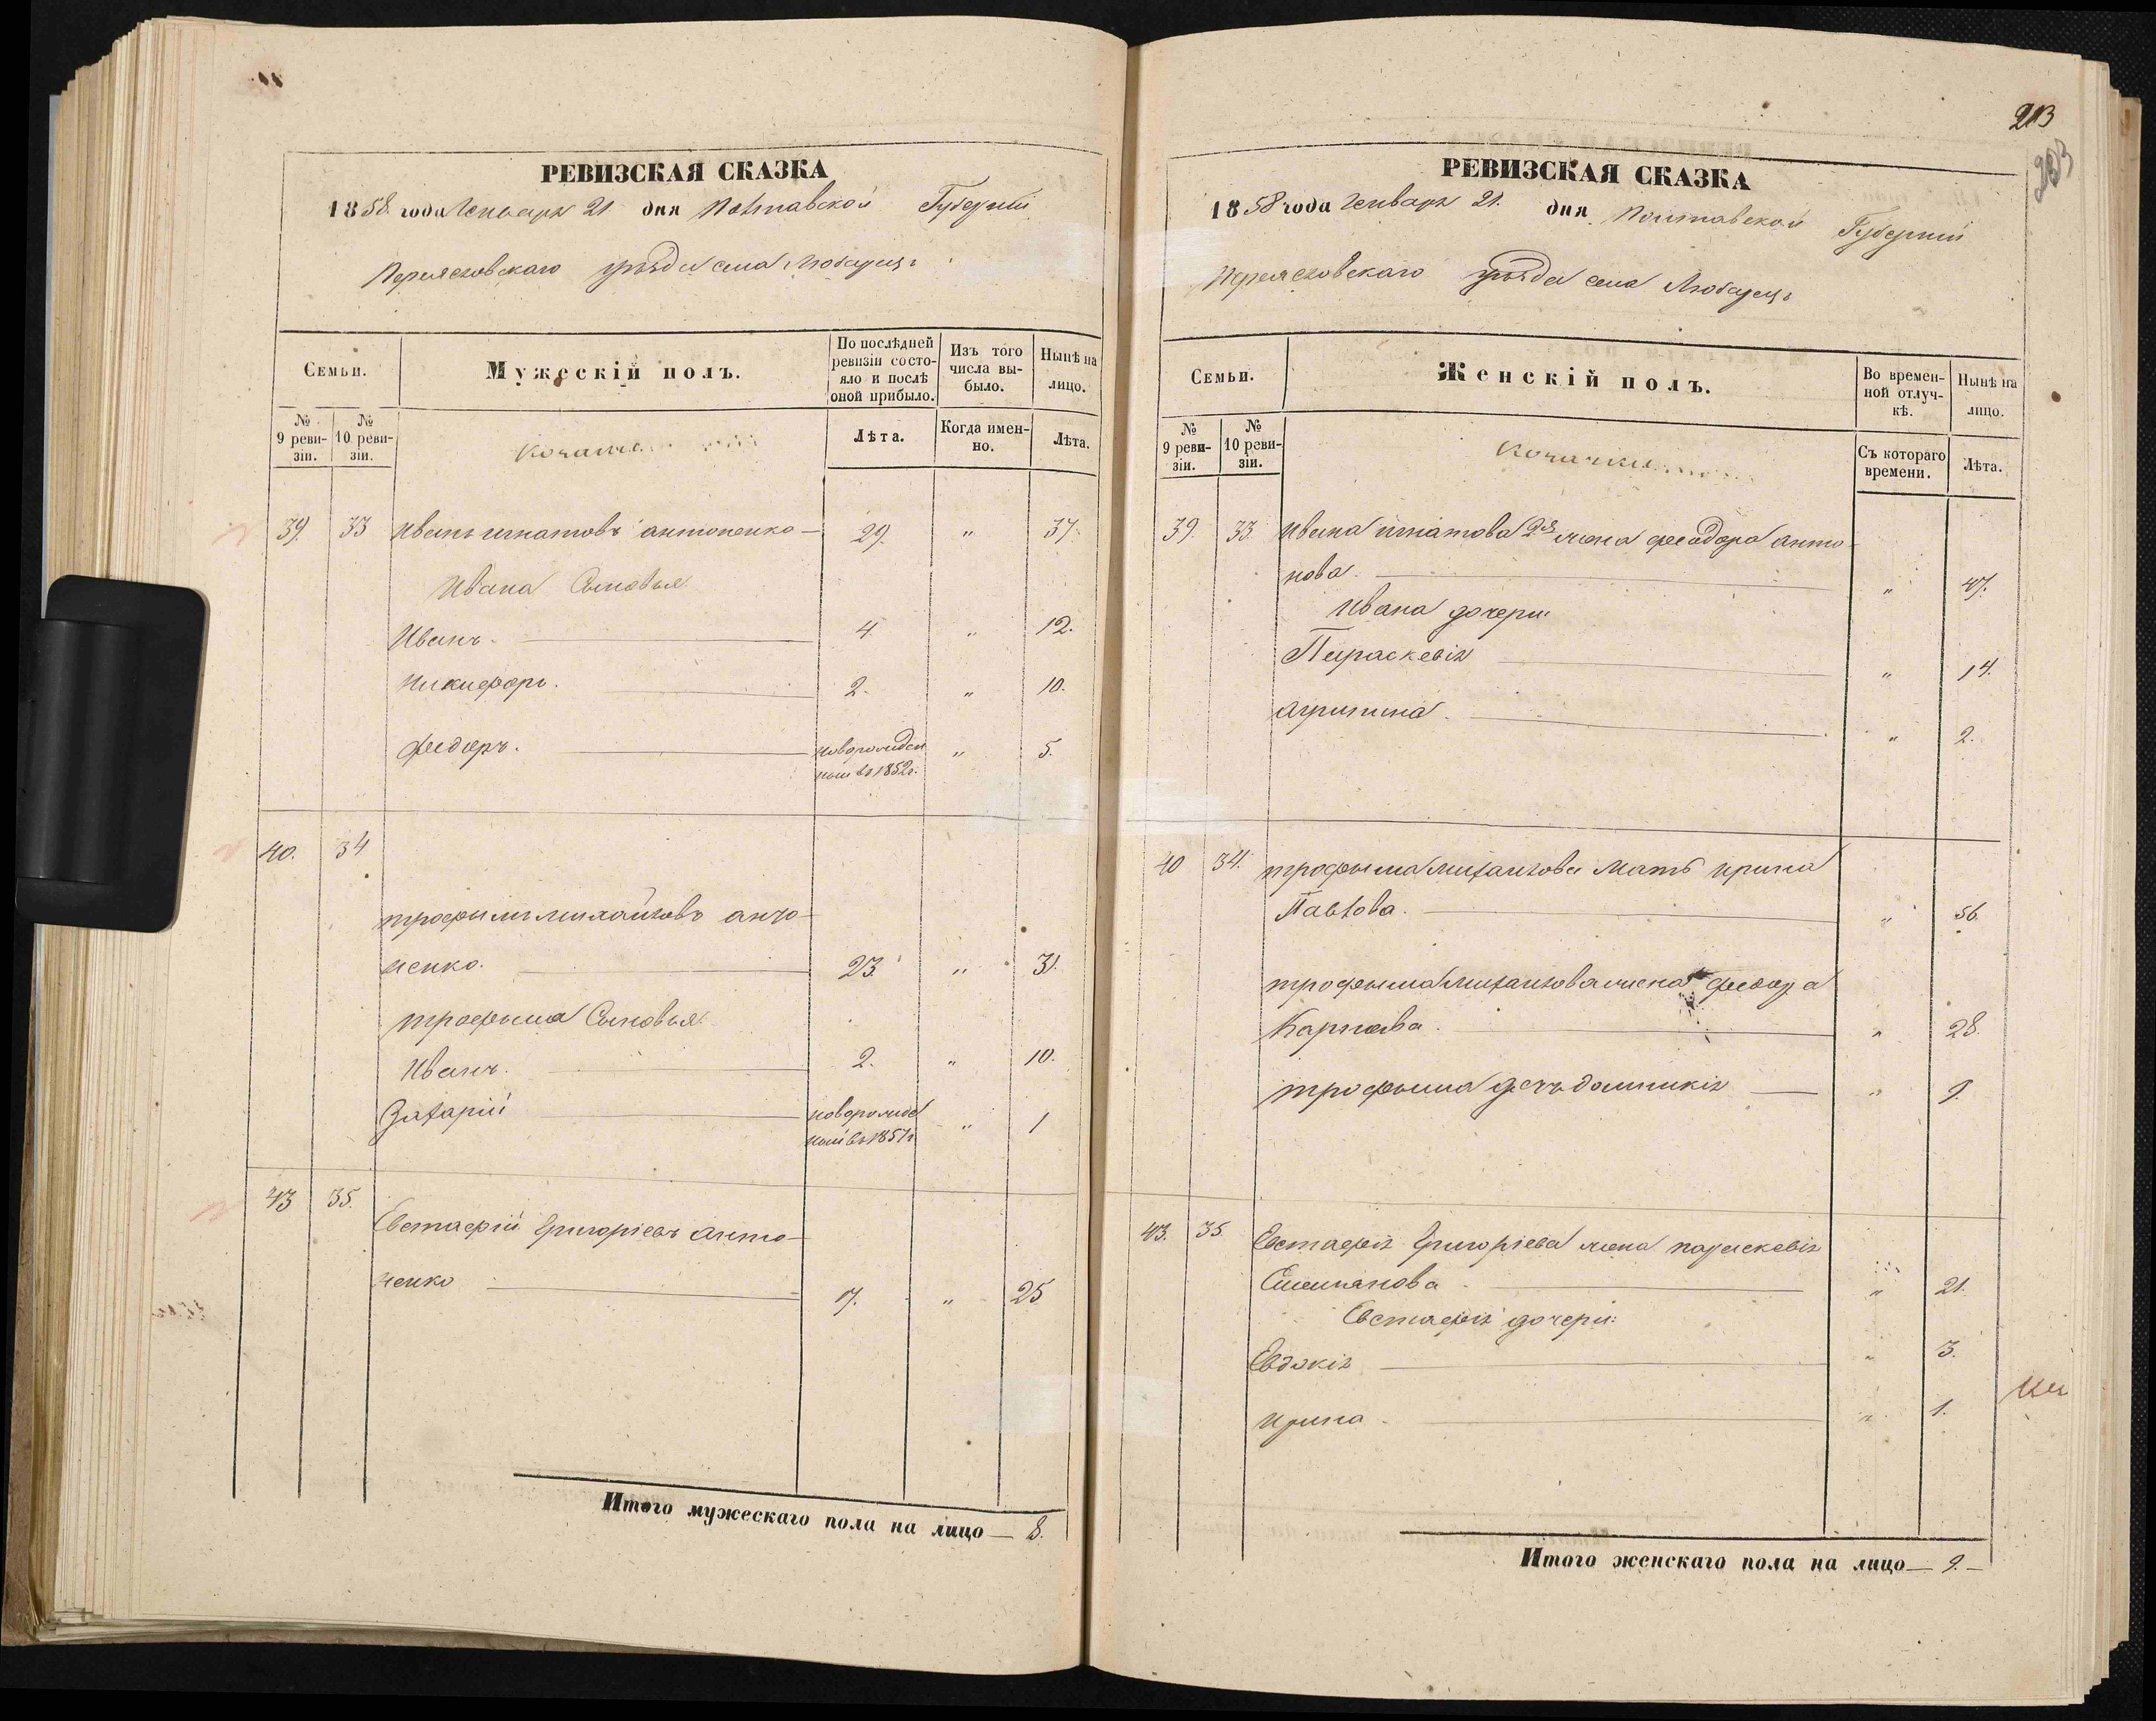 РЕВИЗСКАЯ СКАЗКА
1858 года Генваря 21 дня Полтавской Губерній
Переясловскаго уѣзда села Любарецъ
Семьи.
Мужескій полъ.
По послѣдней ревизіи состо-
яло и послѣ
оной прибыло.
Изъ того
числа вы-
было.
Нынѣ на
лицо.
№
9 реви-
зіи.
№
10 реви-
зіи.
Козаки
Лѣта.
Когда имен-
но.
Лѣта.
39. 33 Иванъ игнатовъ антоненко — 29. " 37.
Ивана Сыновья
Иванъ. 4 " 12.
Никифоръ. 2. " 10.
Федоръ. новорожден " 5.
ный въ 1852г.
40. 34
трофимъ михайловъ анто-
ненко. 23 " 31.
трофыма Сыновья
Иванъ. 2. " 10.
Захарій новорожде " 1
ный въ 1857г
43 35. Евстафій григоріевъ анто-
ненко 17. " 25
Итого мужескаго пола на лицо — 8.
213
РЕВИЗСКАЯ СКАЗКА
1858 года Генваря 21. дня Полтавской Губерній
Переясловскаго уѣзда села Любарецъ
Семьи.
Женскій полъ.
Во времен-
ной отлуч-
кѣ.
Нынѣ на
лицо.
№
9 реви-
зіи.
№
10 реви-
зіи.
Козачки
Съ котораго
времени.
Лѣта.
39. 33. Ивана игнатова 2я жена феодора анто-
нова. " 47.
Ивана дочери:
Параскевія " 14.
агрипина. " 2.
40 34. трофыма михаилова мать ирина
Павлова. " 56.
трофыма михаилова жена федора
Карпова. " 28.
трофыма дочь домникія — " 9.
43. 35. Евстафія Григоріева жена параскевія
Степанова " 21.
Евстафія дочери:
Евдокія " 3.
ирина. " 1.
Итого женскаго пола на лицо — 9. —